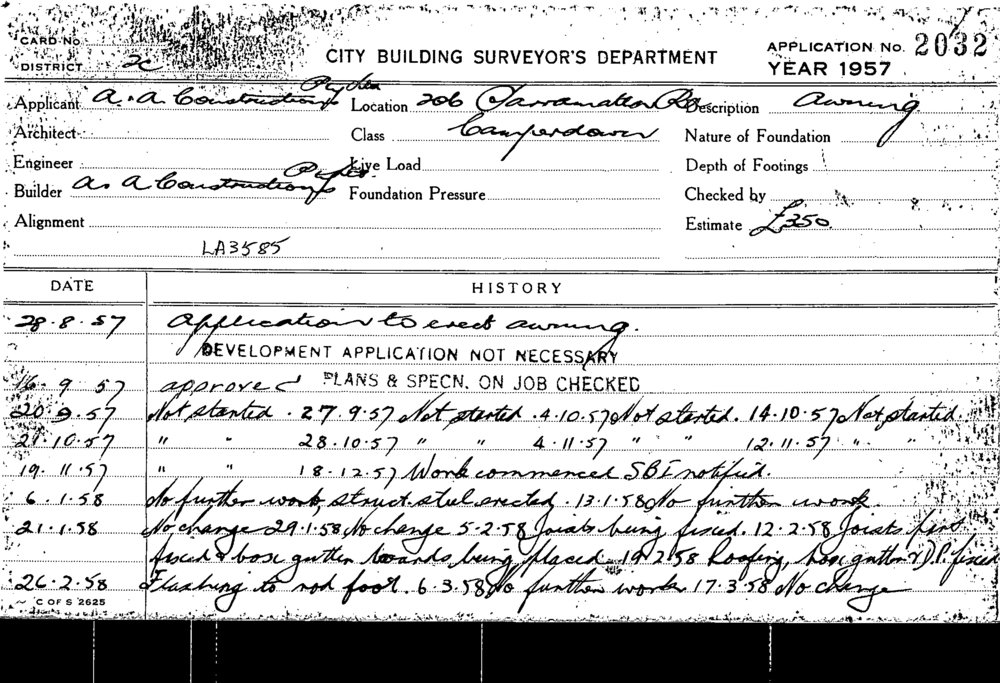 CARD No.
DISTRICT 2C
CITY BUILDING SURVEYOR'S DEPARTMENT
APPLICATION No. 2032
YEAR 1957
Applicant A. A. Constructions Pty Ltd Location 206 Parramatta Rd Description Awning
Architect Class Camperdown Nature of Foundation
Engineer Live Load Depth of Footings
Builder A. A Constructions Pty Ltd. Foundation Pressure Checked by
Alignment Estimate £350.
LA3585
DATE HISTORY
28.8.57 Application to erect awning.
DEVELOPMENT APPLICATION NOT NECESSARY
16.9.57 approved PLANS & SPECN. ON JOB CHECKED
20.9.57 Not started. 27.9.57 Not started. 4.10.57 Not started. 14.10.57 Not started.
21.10.57 " " 28.10.57 " " 4.11.57 " " 12.11.57 " "
19.11.57 " " 18.12.57 Work commenced SBI notified.
6.1.58 No further work, struct. steel erected. 13.1.58 No further work.
21.1.58 No change 29.1.58 No change 5.2.58 Joists being fixed. 12.2.58 Joists
fixed & box gutter boards being placed. 19.2.58 Roofing, box gutter & D.P. fixed
26.2.58 Flashing to roof foot. 6.3.58 No further work 17.3.58 No change
C OF S 2625